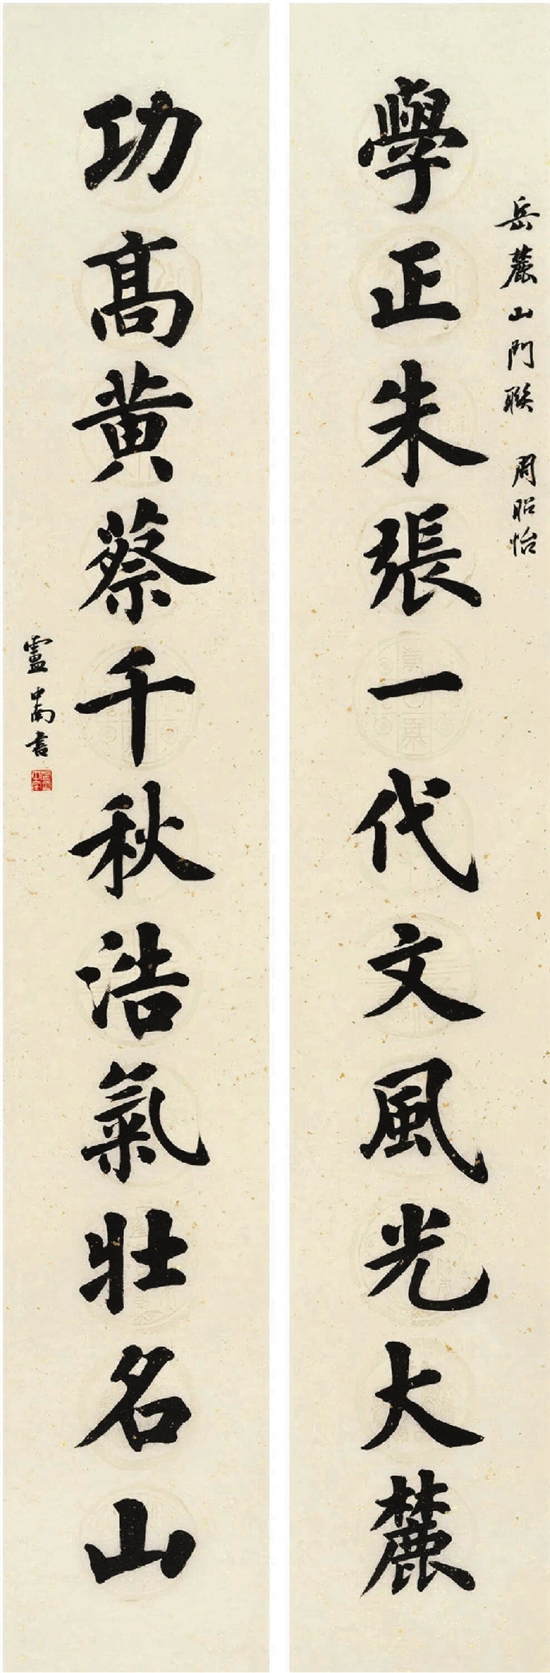 岳麓山門聯 周昭怡
學正朱張一代文風光大麓
功高黄蔡千秋浩氣壯名山
盧中南書